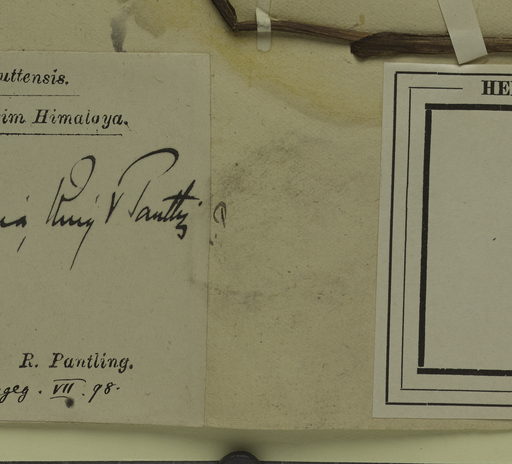 uttensis.
im Himalaya.
King & Pantling
R. Pantling.
geg. VII. 98.
HE